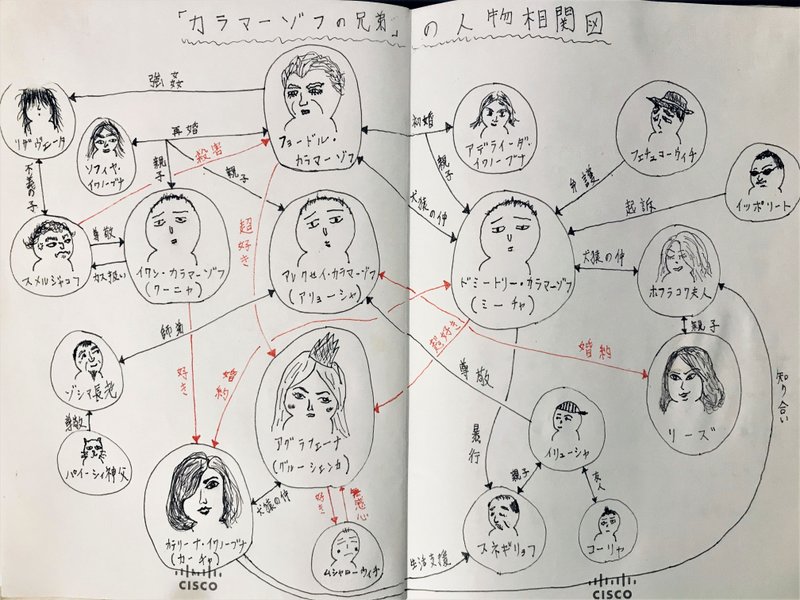 「カラマーゾフの兄弟」の人物相関図
強姦
リザヴェータ
ソフィヤ・
イワノーブナ
再婚
フョードル・
カラマーゾフ
初婚
アデライーダ・
イワノーブナ
フェチュコーウィチ
イッポリート
親子
殺害
親子
親子
弁護
起訴
犬猿の仲
不義の子
スメルジャコフ
尊敬
カス扱い
イワン・カラマーゾフ
(ワーニャ)
超好き
アレクセイ・カラマーゾフ
(アリョーシャ)
ドミートリー・カラマーゾフ
(ミーチャ)
犬猿の仲
ホフラコワ夫人
親子
師弟
ゾシマ長老
尊敬
パイーシイ神父
好き
婚約
超好き
婚約
リーズ
知り合い
アグラフェーナ
(グルーシェンカ)
尊敬
暴行
イリューシャ
親子
友人
カテリーナ・イワノーブナ
(カーチャ)
犬猿の仲
好き
ムシャローウィチ
生活支援
スネギリョフ
コーリャ
CISCO
CISCO